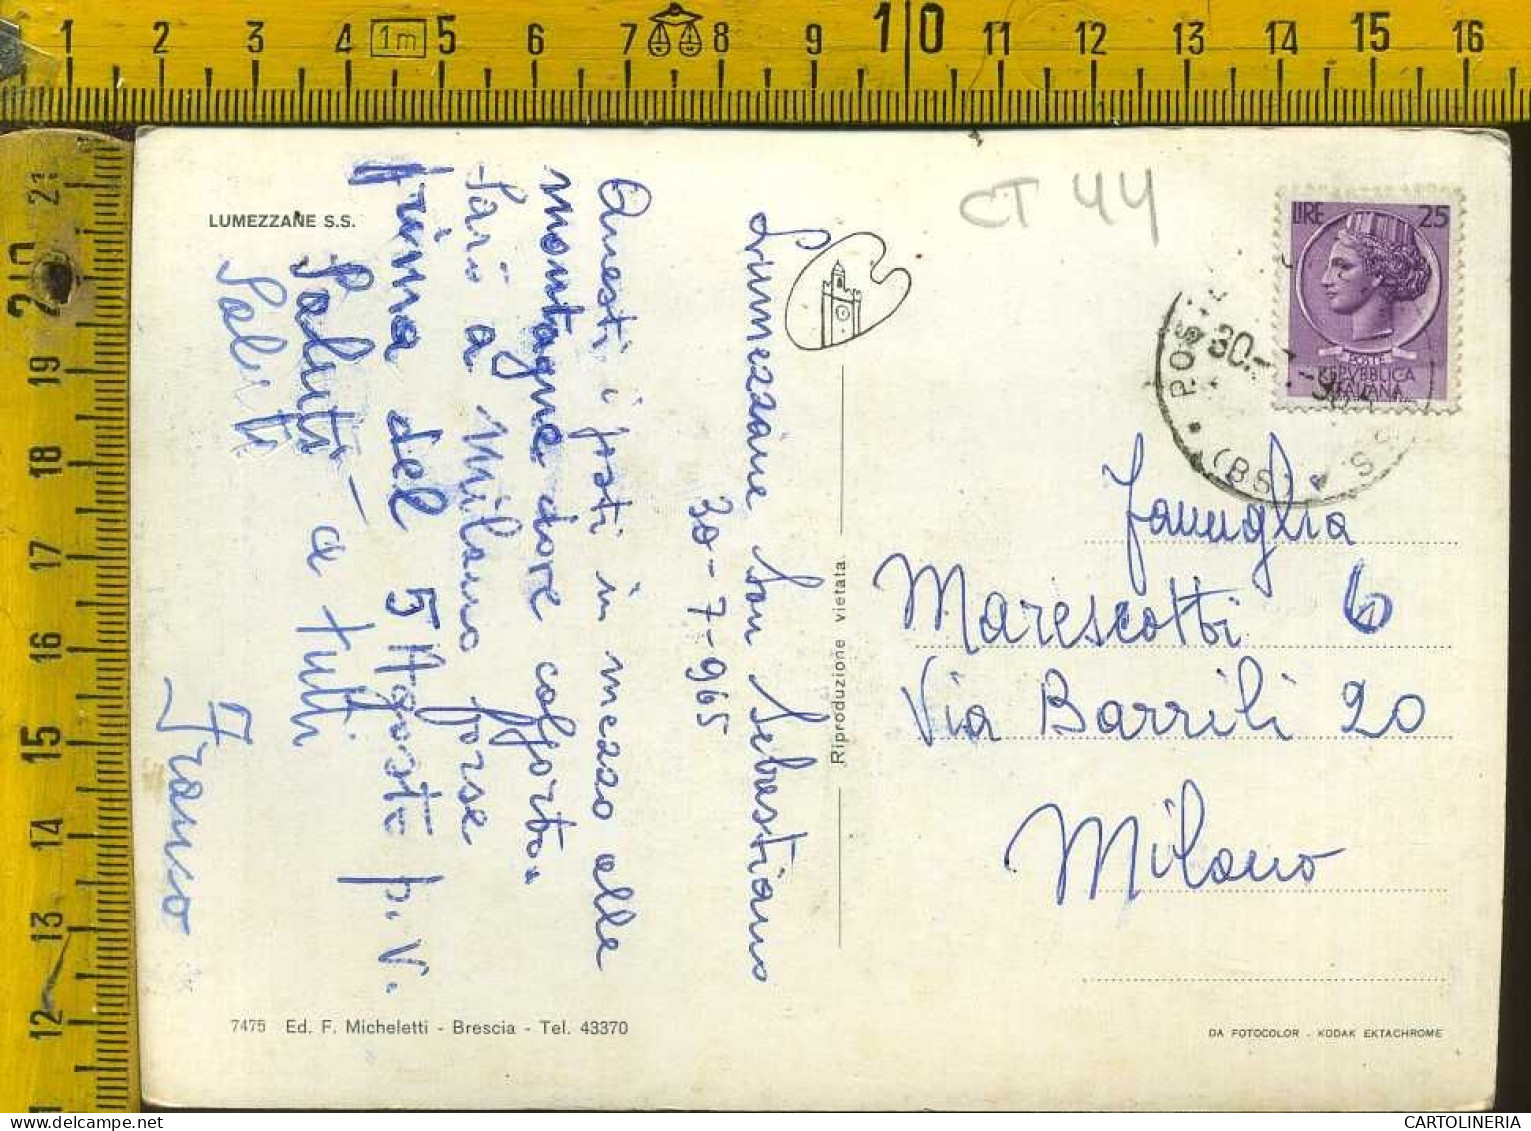 1 2 3 4 1m 5 6 7 8 9 10 11 12 13 14 15 16
21
20
19
18
17
16
15
14
13
12
LUMEZZANE S.S.
CT 44
LIRE 25
POSTE
REPVBBLICA
ITALIANA
POSTE
30-7-965
(BS)
S.S.
Lumezzane San Sebastiano
30-7-965
Questi i posti in mezzo alle
montagne dove
Sarò a Milano forse
prima del 5 Agosto p.v.
Saluti a tutti
Saluti
Franco
Famiglia
Marescotti 6
Via Barrili 20
Milano
Riproduzione vietata
7475 Ed. F. Micheletti - Brescia - Tel. 43370
DA FOTOCOLOR - KODAK EKTACHROME
CARTOLINERIA